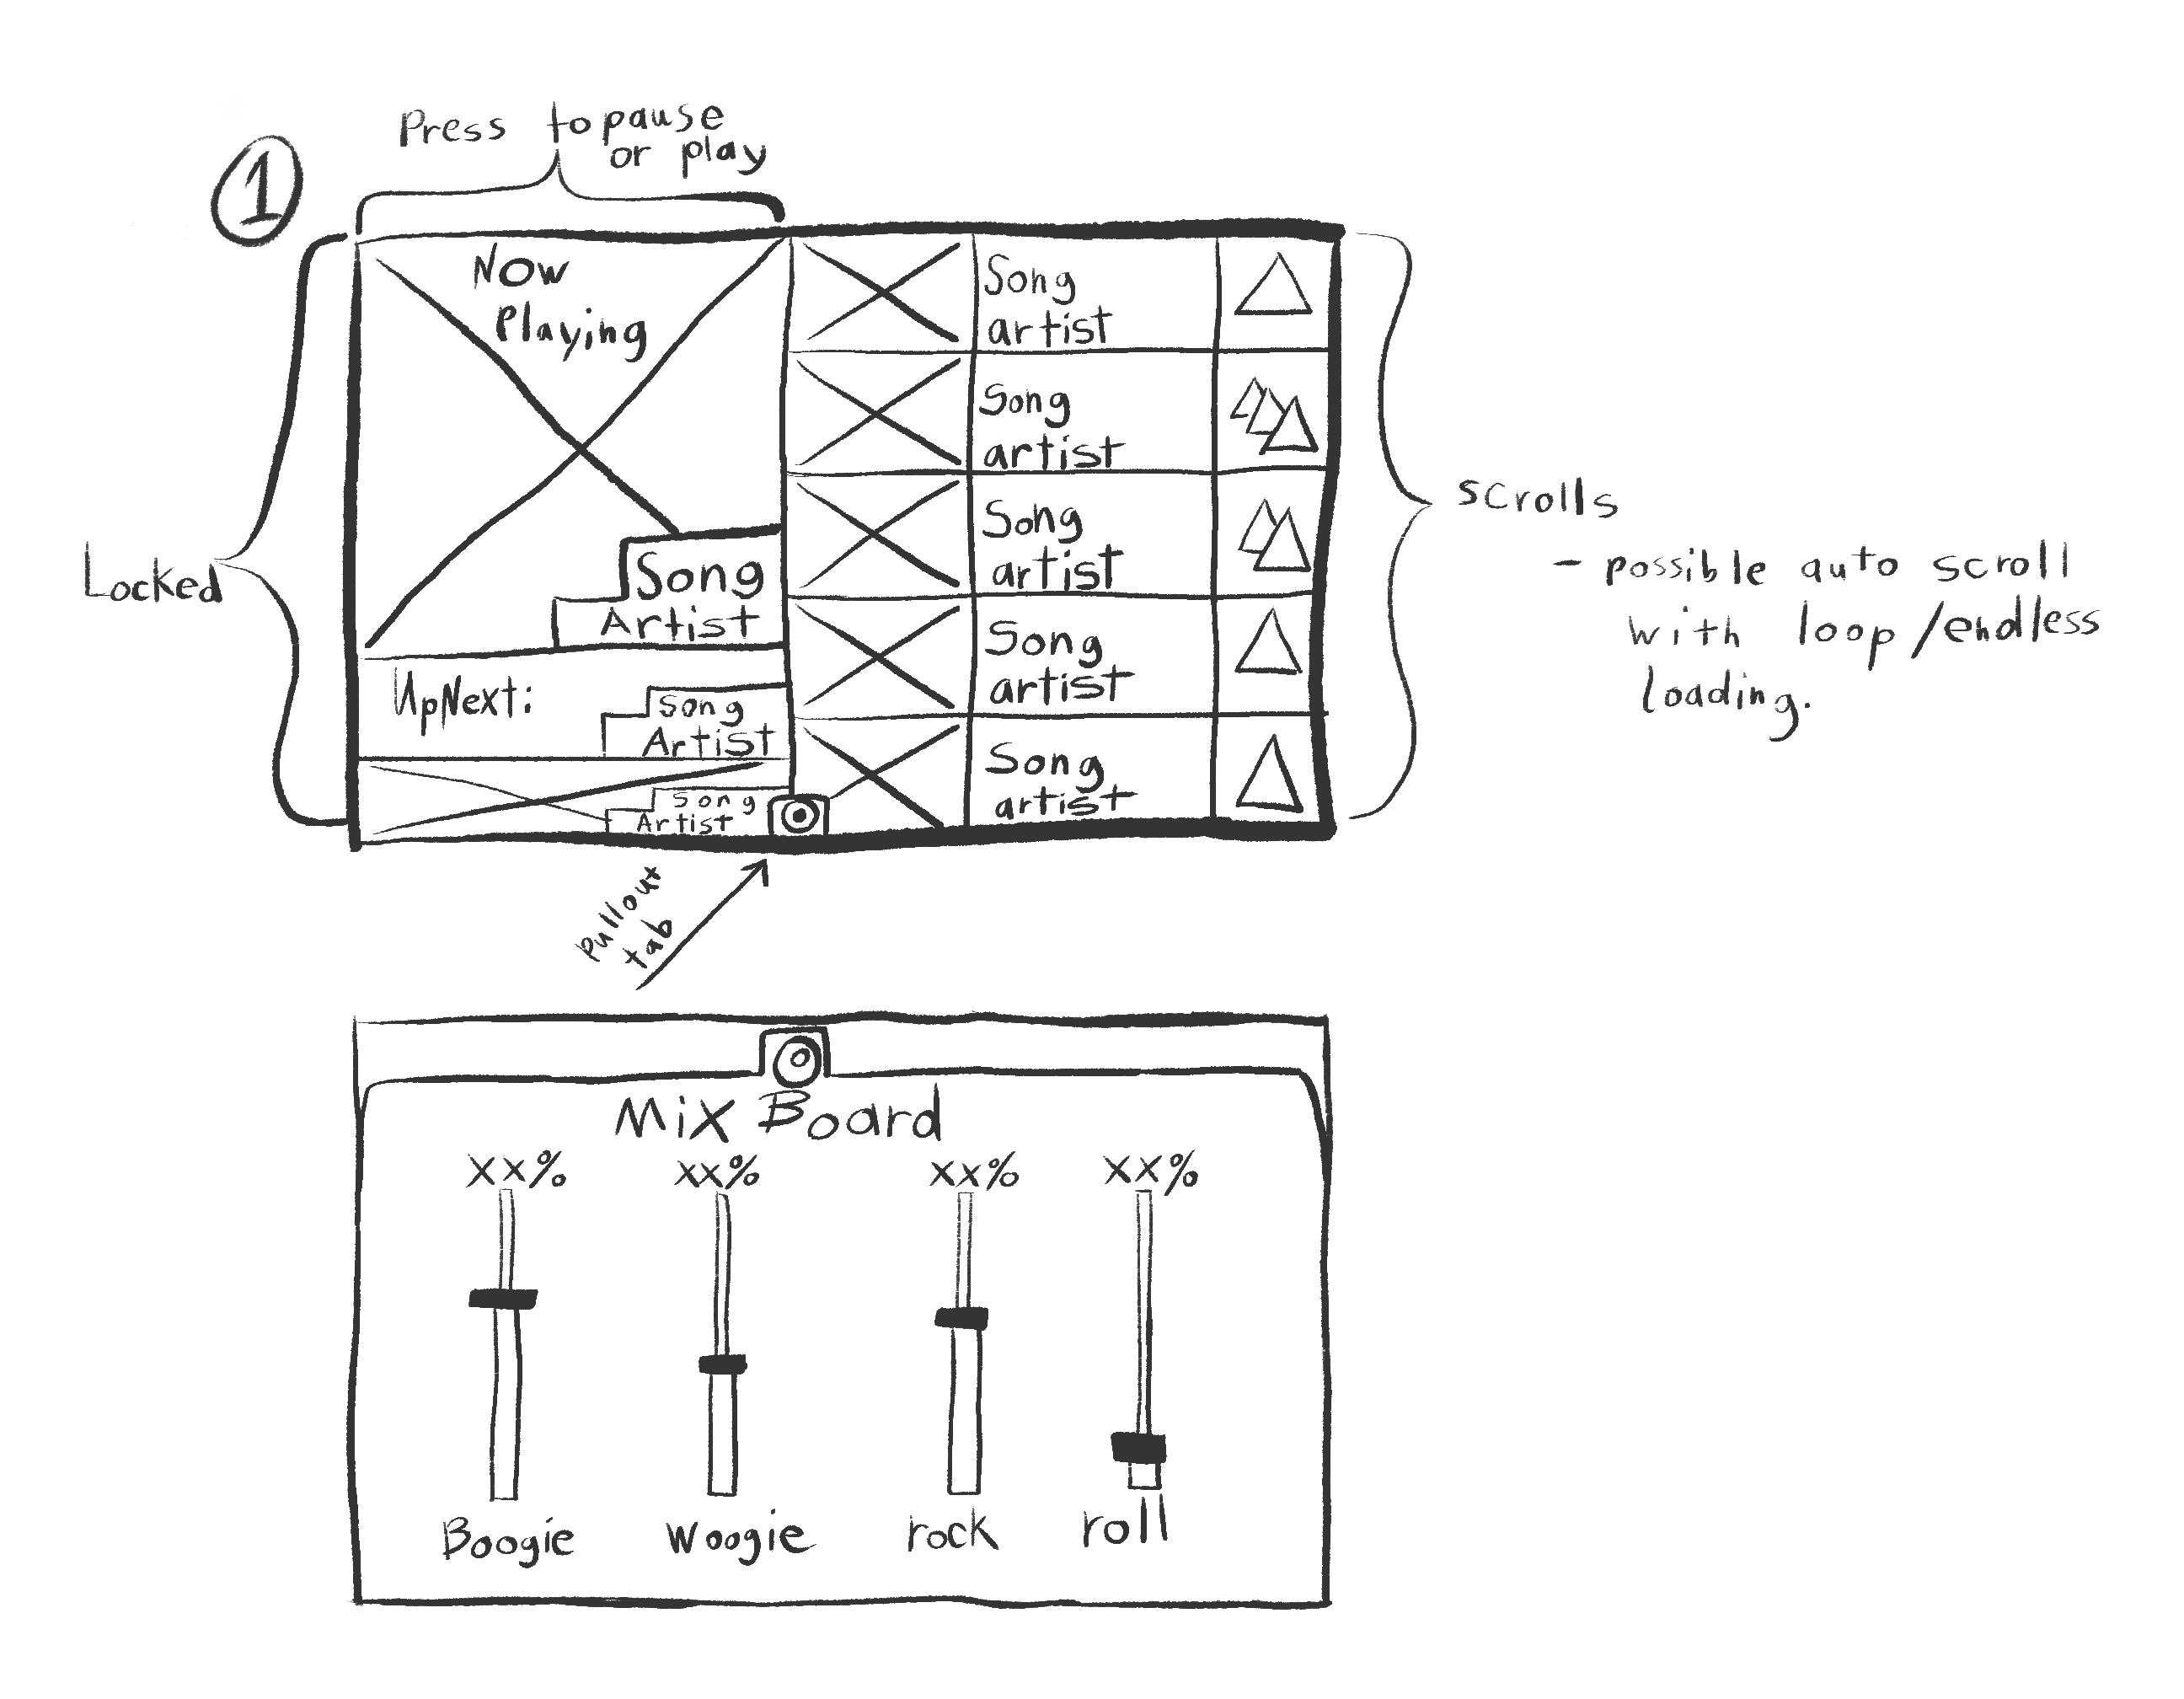 1
Press to pause
or play
Now
Playing
Song
Artist
UpNext:
Song
Artist
Song
Artist
Song
artist
Song
artist
Song
artist
Song
artist
Song
artist
Locked
scrolls
- possible auto scroll
with loop/endless
loading.
Pullout
tab
Mix Board
xx%
xx%
xx%
xx%
Boogie
Woogie
rock
roll